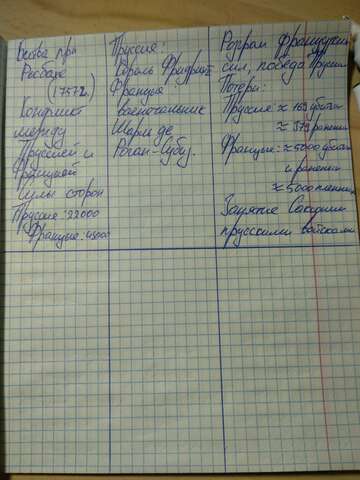 Битва при
Росбахе
(1757г.)
Конфликт
между
Пруссией и
Францией
Силы сторон
Пруссия: 22000
Франция: 45000
Пруссия:
Король Фридрих
Франция
военачальник
Шарль де
Роган-Субиз.
Разгром французских
сил, победа Пруссии
Потери:
Пруссия: ≈ 169 убитых
≈ 379 ранены
Франция: ≈5000 убитых
и ранеными
≈ 5000 пленных
Занятие Саксонии
прусскими войсками